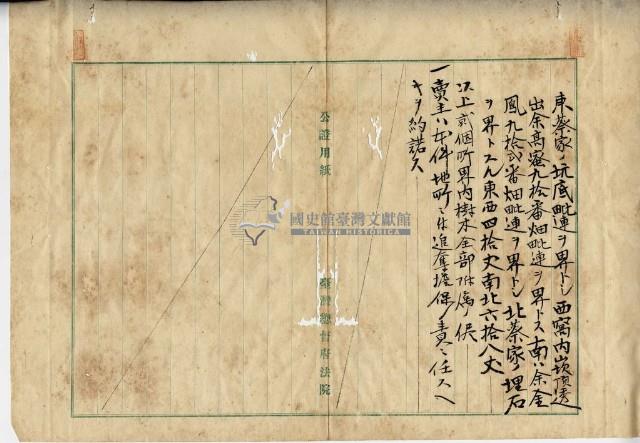 東蔡家ノ坑底毗連ヲ界トシ西窩内崁頂透
出余高密九拾番畑毗連ヲ界トス南ハ余金
鳳九拾弐番畑毗連ヲ界トシ北蔡家ノ埋石
ヲ界トス東西四拾丈南北六拾八丈
以上貳個所界内樹木全部附属ノ侭
一賣主ハ本件地所ニ付追奪擔保ノ責ニ任スヘ
キヲ約諾ス
公證用紙
臺灣總督府法院
國史館臺灣文獻館
TAIWAN HISTORICA